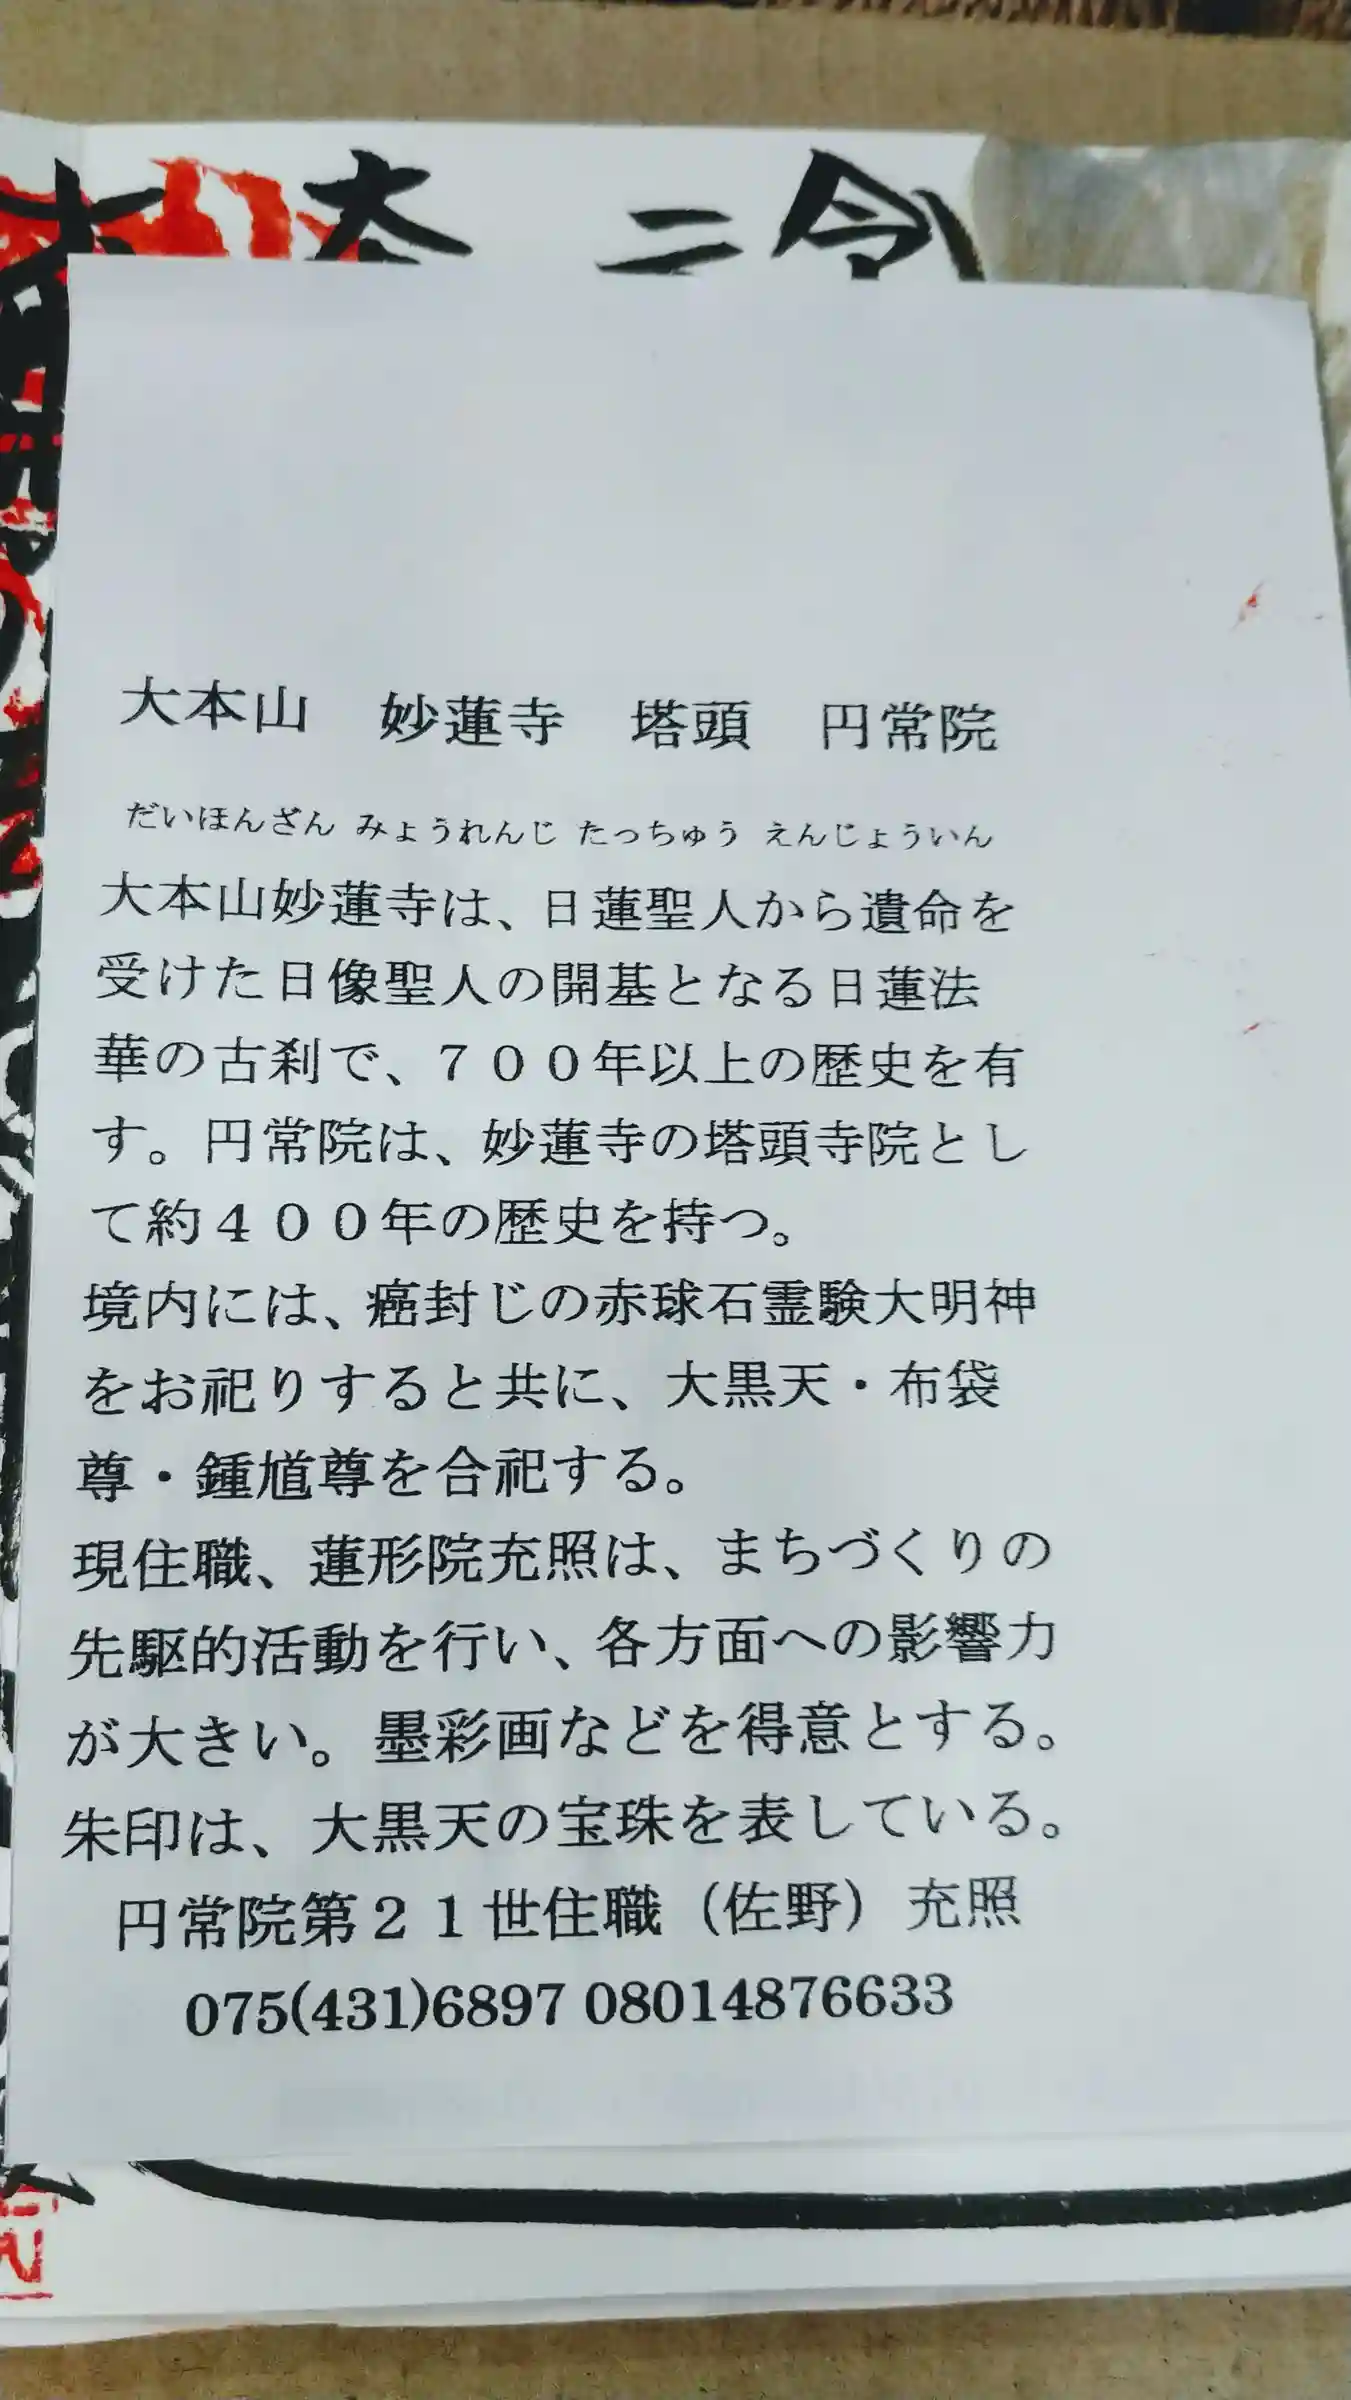 二 令
大本山　妙蓮寺　塔頭　円常院
だいほんざん みょうれんじ たっちゅう えんじょういん
大本山妙蓮寺は、日蓮聖人から遺命を
受けた日像聖人の開基となる日蓮法
華の古刹で、７００年以上の歴史を有
す。円常院は、妙蓮寺の塔頭寺院とし
て約４００年の歴史を持つ。
境内には、癌封じの赤球石霊験大明神
をお祀りすると共に、大黒天・布袋
尊・鍾馗尊を合祀する。
現住職、蓮形院充照は、まちづくりの
先駆的活動を行い、各方面への影響力
が大きい。墨彩画などを得意とする。
朱印は、大黒天の宝珠を表している。
円常院第２１世住職（佐野）充照
075(431)6897 08014876633